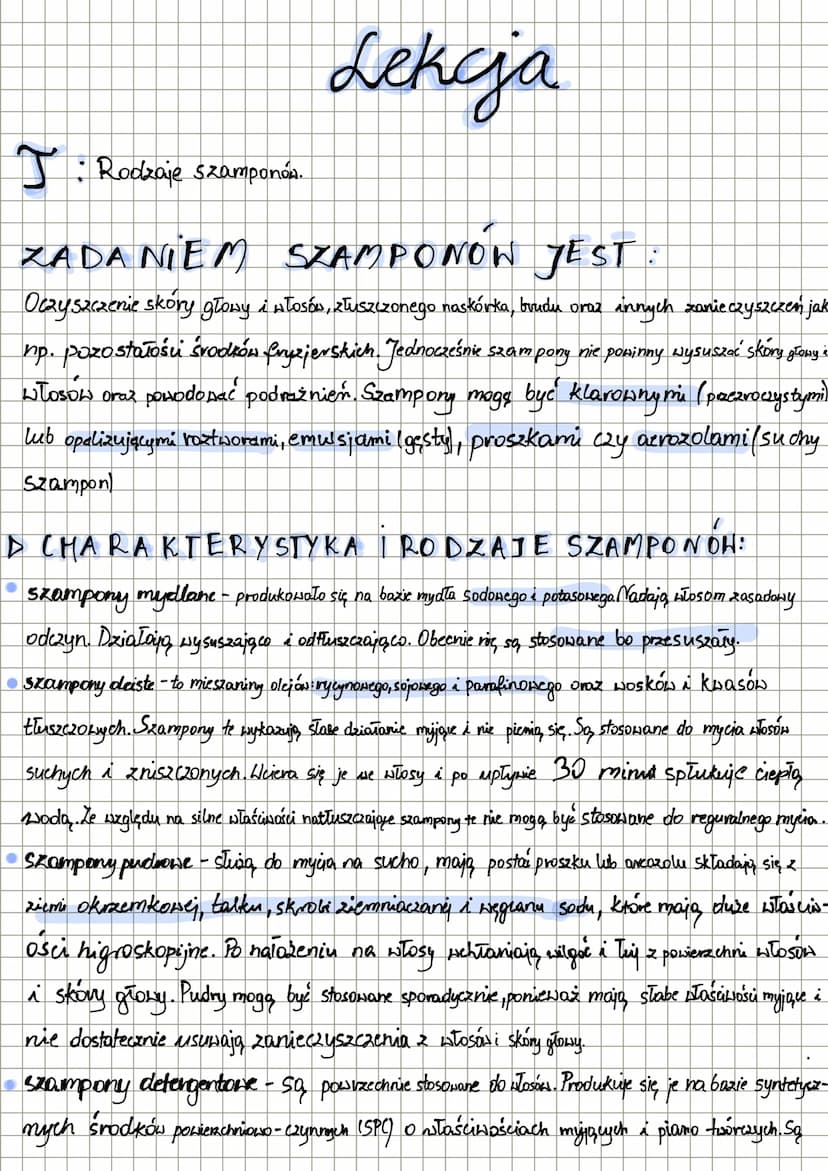 Lekcja
T: Rodzaje szamponów.
ZADANIEM SZAMPONÓW JEST:
Oczyszczenie skóry głowy i włosów, złuszczonego naskórka, brudu oraz innych zanieczyszczeń jak
np. pozostałości środków fryzjerskich. Jednocześnie szampony nie powinny wysuszać skóry głowy i
włosów oraz powodować podrażnień. Szampony mogą być klarownymi (przezroczystymi)
lub opalizującymi roztworami, emulsjami (gęsty), proszkami czy aerozolami (suchy
szampon)
▷ CHARAKTERYSTYKA I RODZAJE SZAMPONÓW:
• szampony mydlane - produkowało się na bazie mydła sodowego i potasowego. Nadają włosom zasadowy
odczyn. Działają wysuszająco i odtłuszczająco. Obecnie nie są stosowane bo przesuszały.
• szampony oleiste - to mieszaniny olejów: rycynowego, sojowego i parafinowego oraz wosków i kwasów
tłuszczowych. Szampony te wykazują słabe działanie myjące i nie pienią się. Są stosowane do mycia włosów
suchych i zniszczonych. Wciera się je we włosy i po upływie 30 minut spłukuje ciepłą
wodą. Ze względu na silne właściwości natłuszczające szampony te nie mogą być stosowane do reguralnego mycia.
• szampony pudrowe - służą do mycia na sucho, mają postać proszku lub areozolu składają się z
ziemi okrzemkowej, talku, skrobi ziemniaczanej i węglanu sodu, które mają duże właściw-
ości higroskopijne. Po nałożeniu na włosy wchłaniają wilgoć i łój z powierzchni włosów
i skóry głowy. Pudry mogą być stosowane sporadycznie, ponieważ mają słabe właściwości myjące i
nie dostatecznie usuwają zanieczyszczenia z włosów i skóry głowy.
• szampony detergentowe - są powrzechnie stosowane do włosów. Produkuje się je na bazie syntetycz-
nych środków powierzchniowo-czynnych (SPC) o właściwościach myjących i piano twórczych. Są